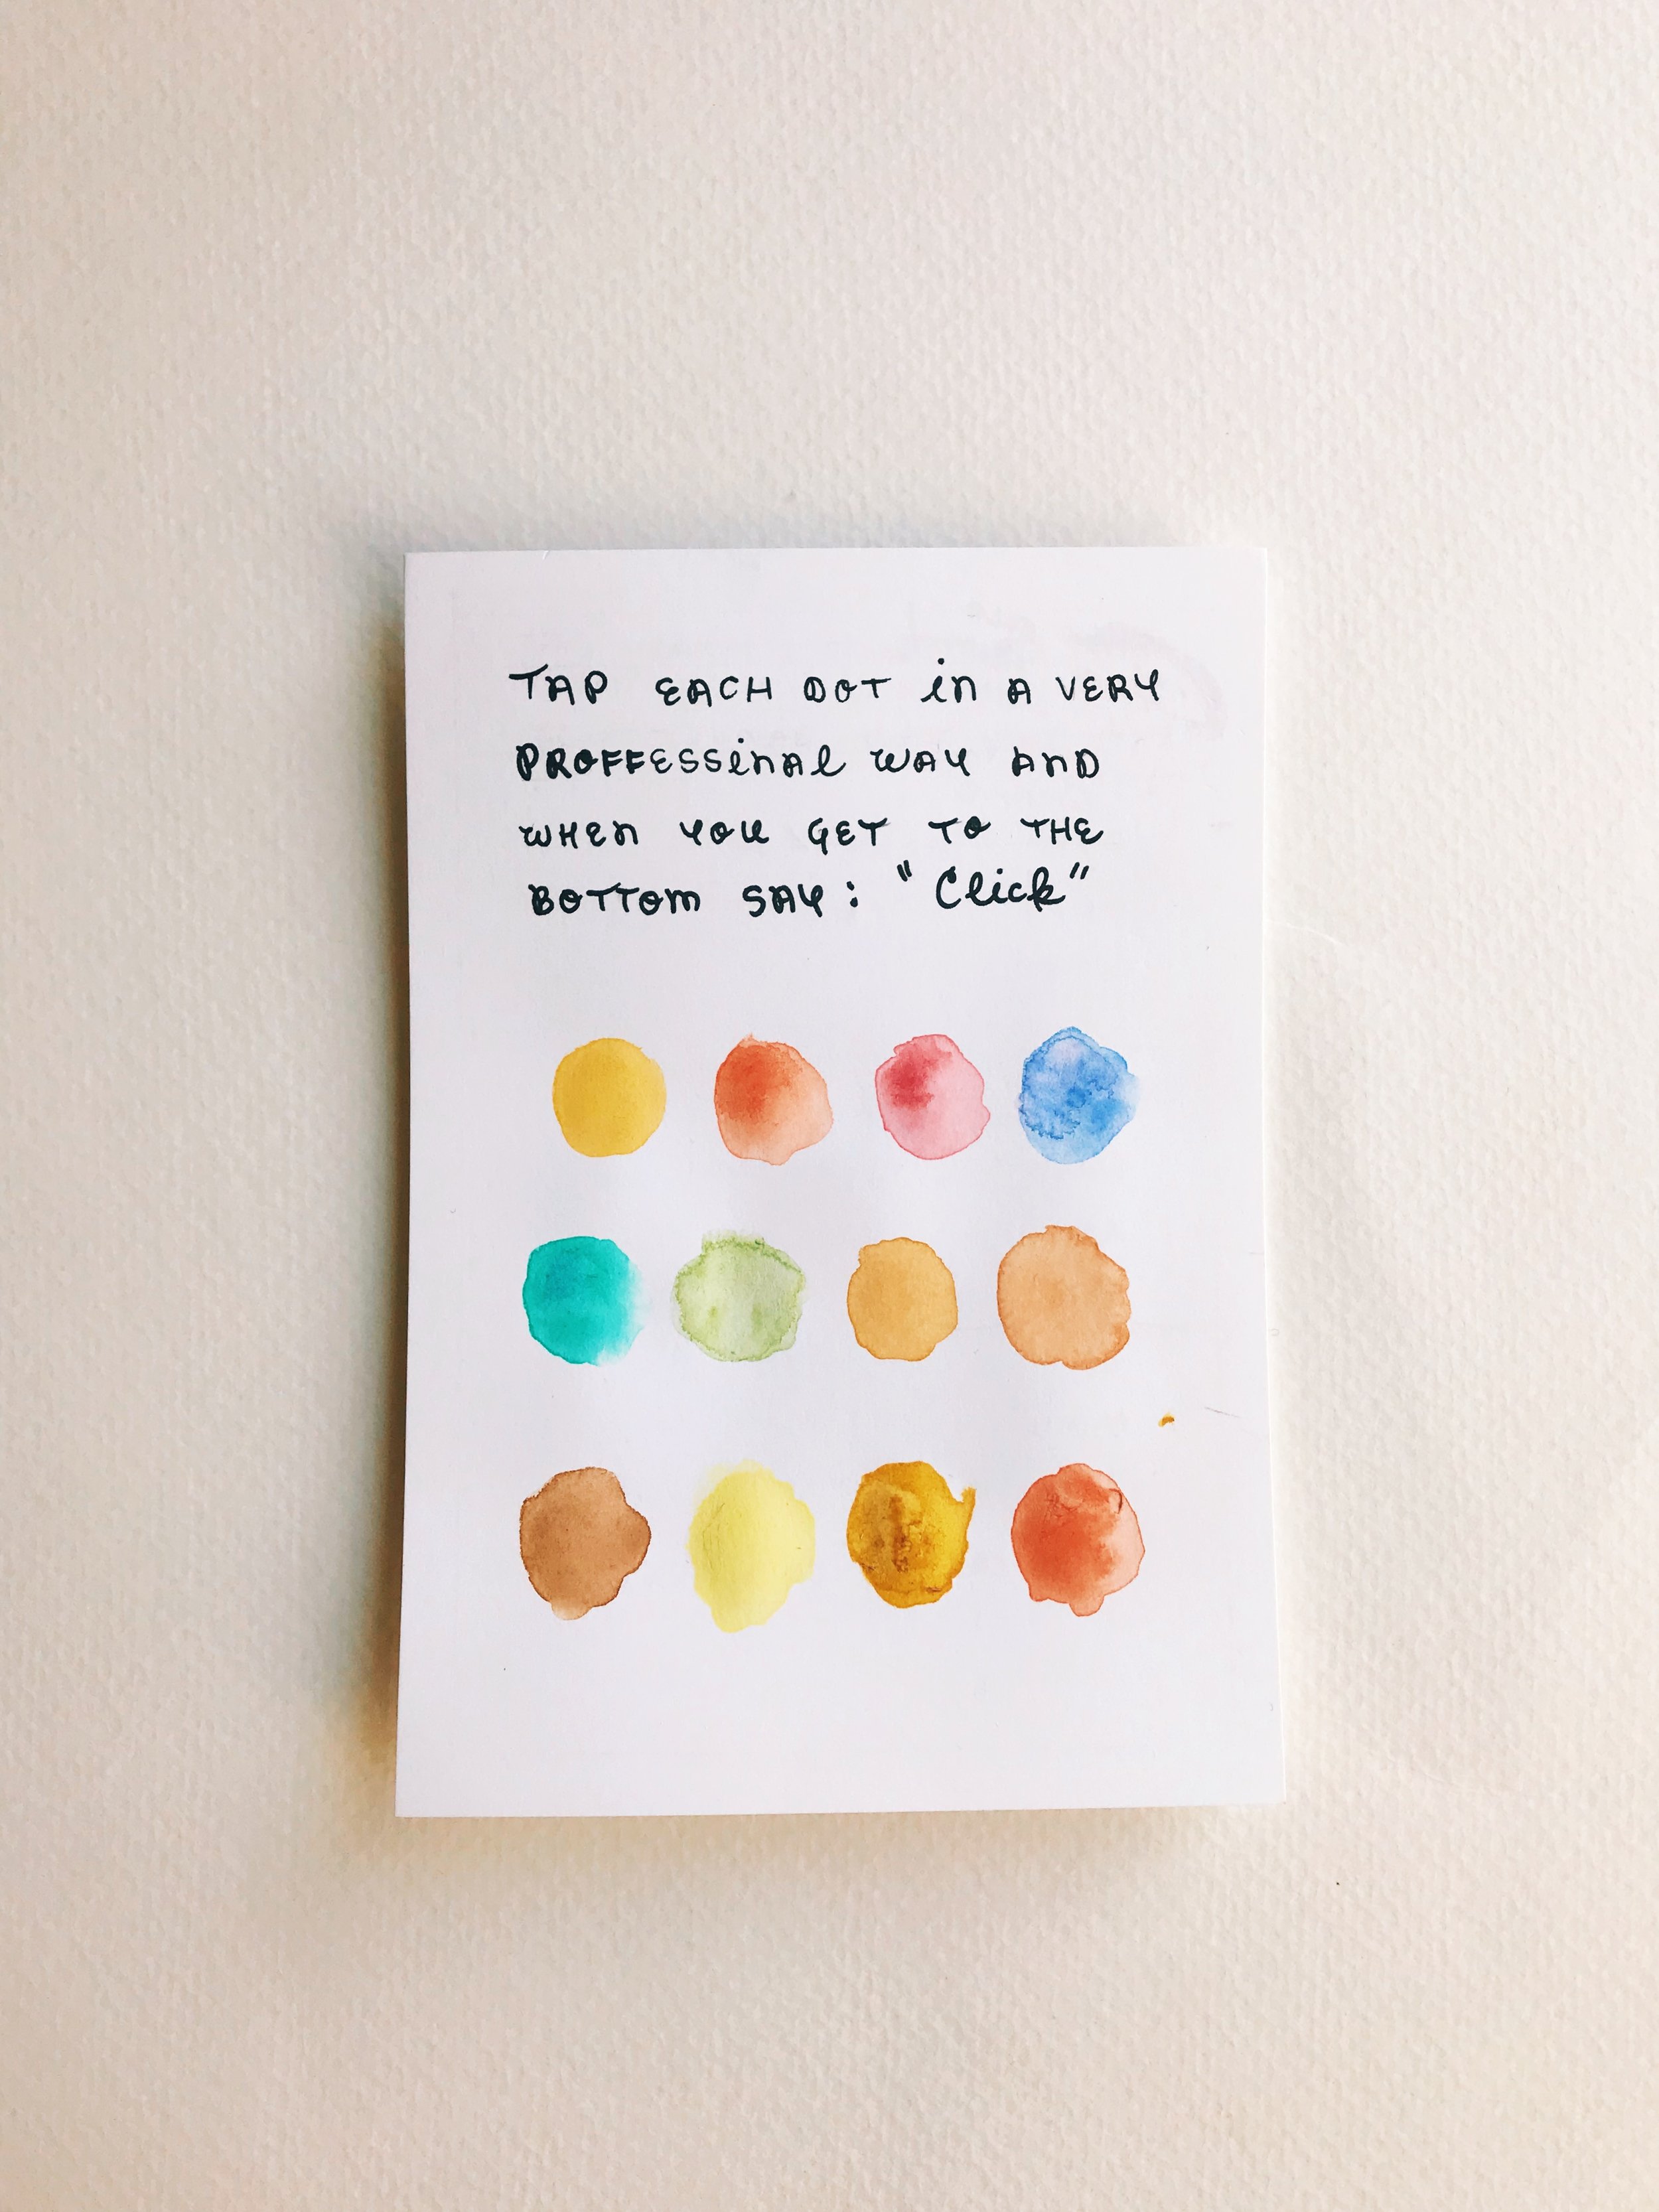 TAP EACH DOT in A VERY
PROFFESSinAl WAY AND
WHEN YOU GET TO THE
BOTTOM SAY: "Click"